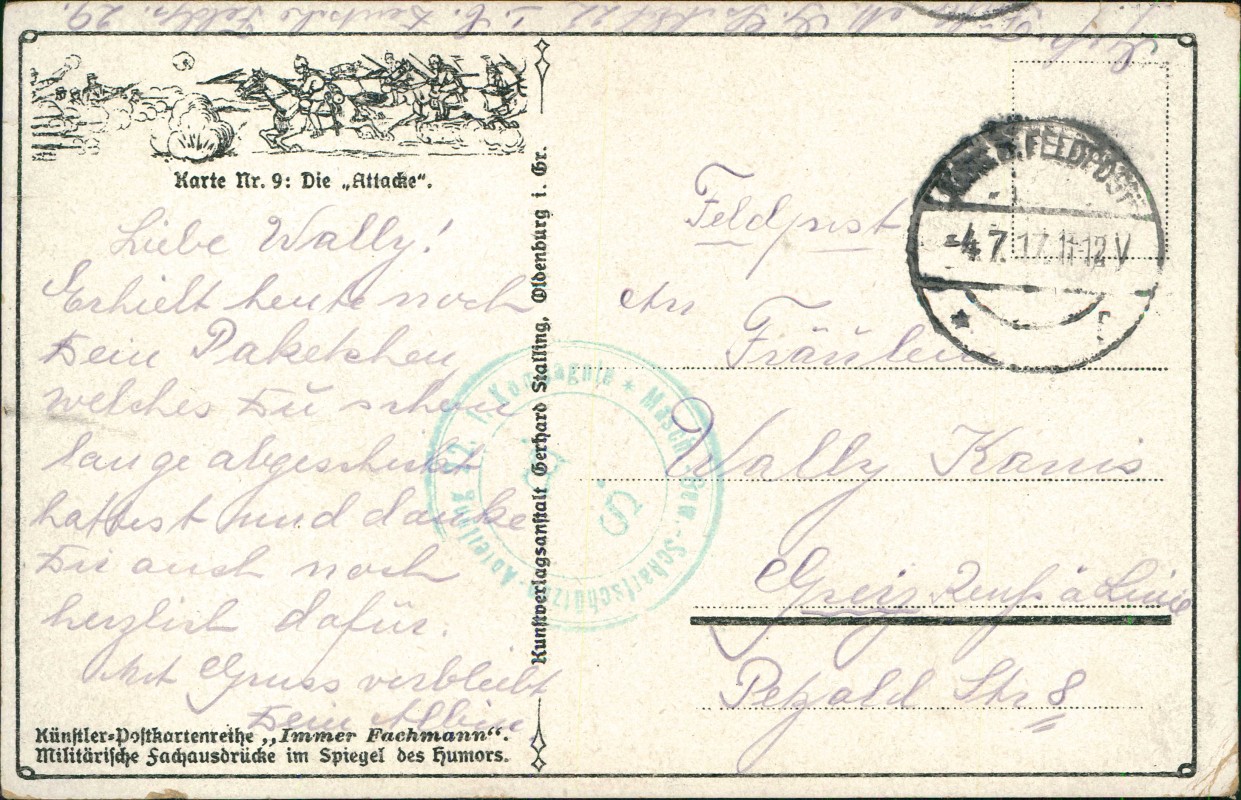 Karte Nr. 9: Die „Attacke“.
Liebe Wally!
Erhielt heute noch
Dein Paketchen,
welches Du schon
lange abgeschickt
hattest und danke
Dir auch noch
herzlich dafür.
Mit Gruss verbleibt
Dein Albin.
Künstler=Postkartenreihe „Immer Fachmann“.
Militärische Fachausdrücke im Spiegel des Humors.
Kunstverlagsanstalt Gerhard Stalling, Oldenburg i. Gr.
Kompagnie * Masch.-Gew.-Scharfschützen-Abteilung 22
S.B.
D. FELDPOST
-4.7.17.11-12V
Feldpost
An
Fräulein
Wally Kanis
Greiz Reuß ä Linie
Petzold Str 8
Deutsche Feldp. 29.